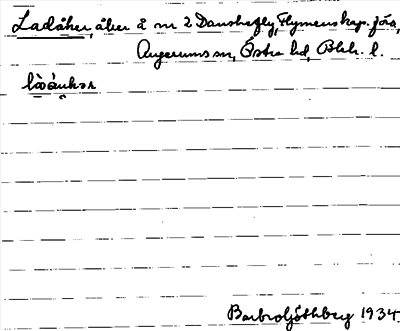 Ladåker, åker å nr 2 Danskefly, Flymens kap. förs,
Augerums sn, Östra hd, Blek. l.
Barbro Ljöthberg 1934